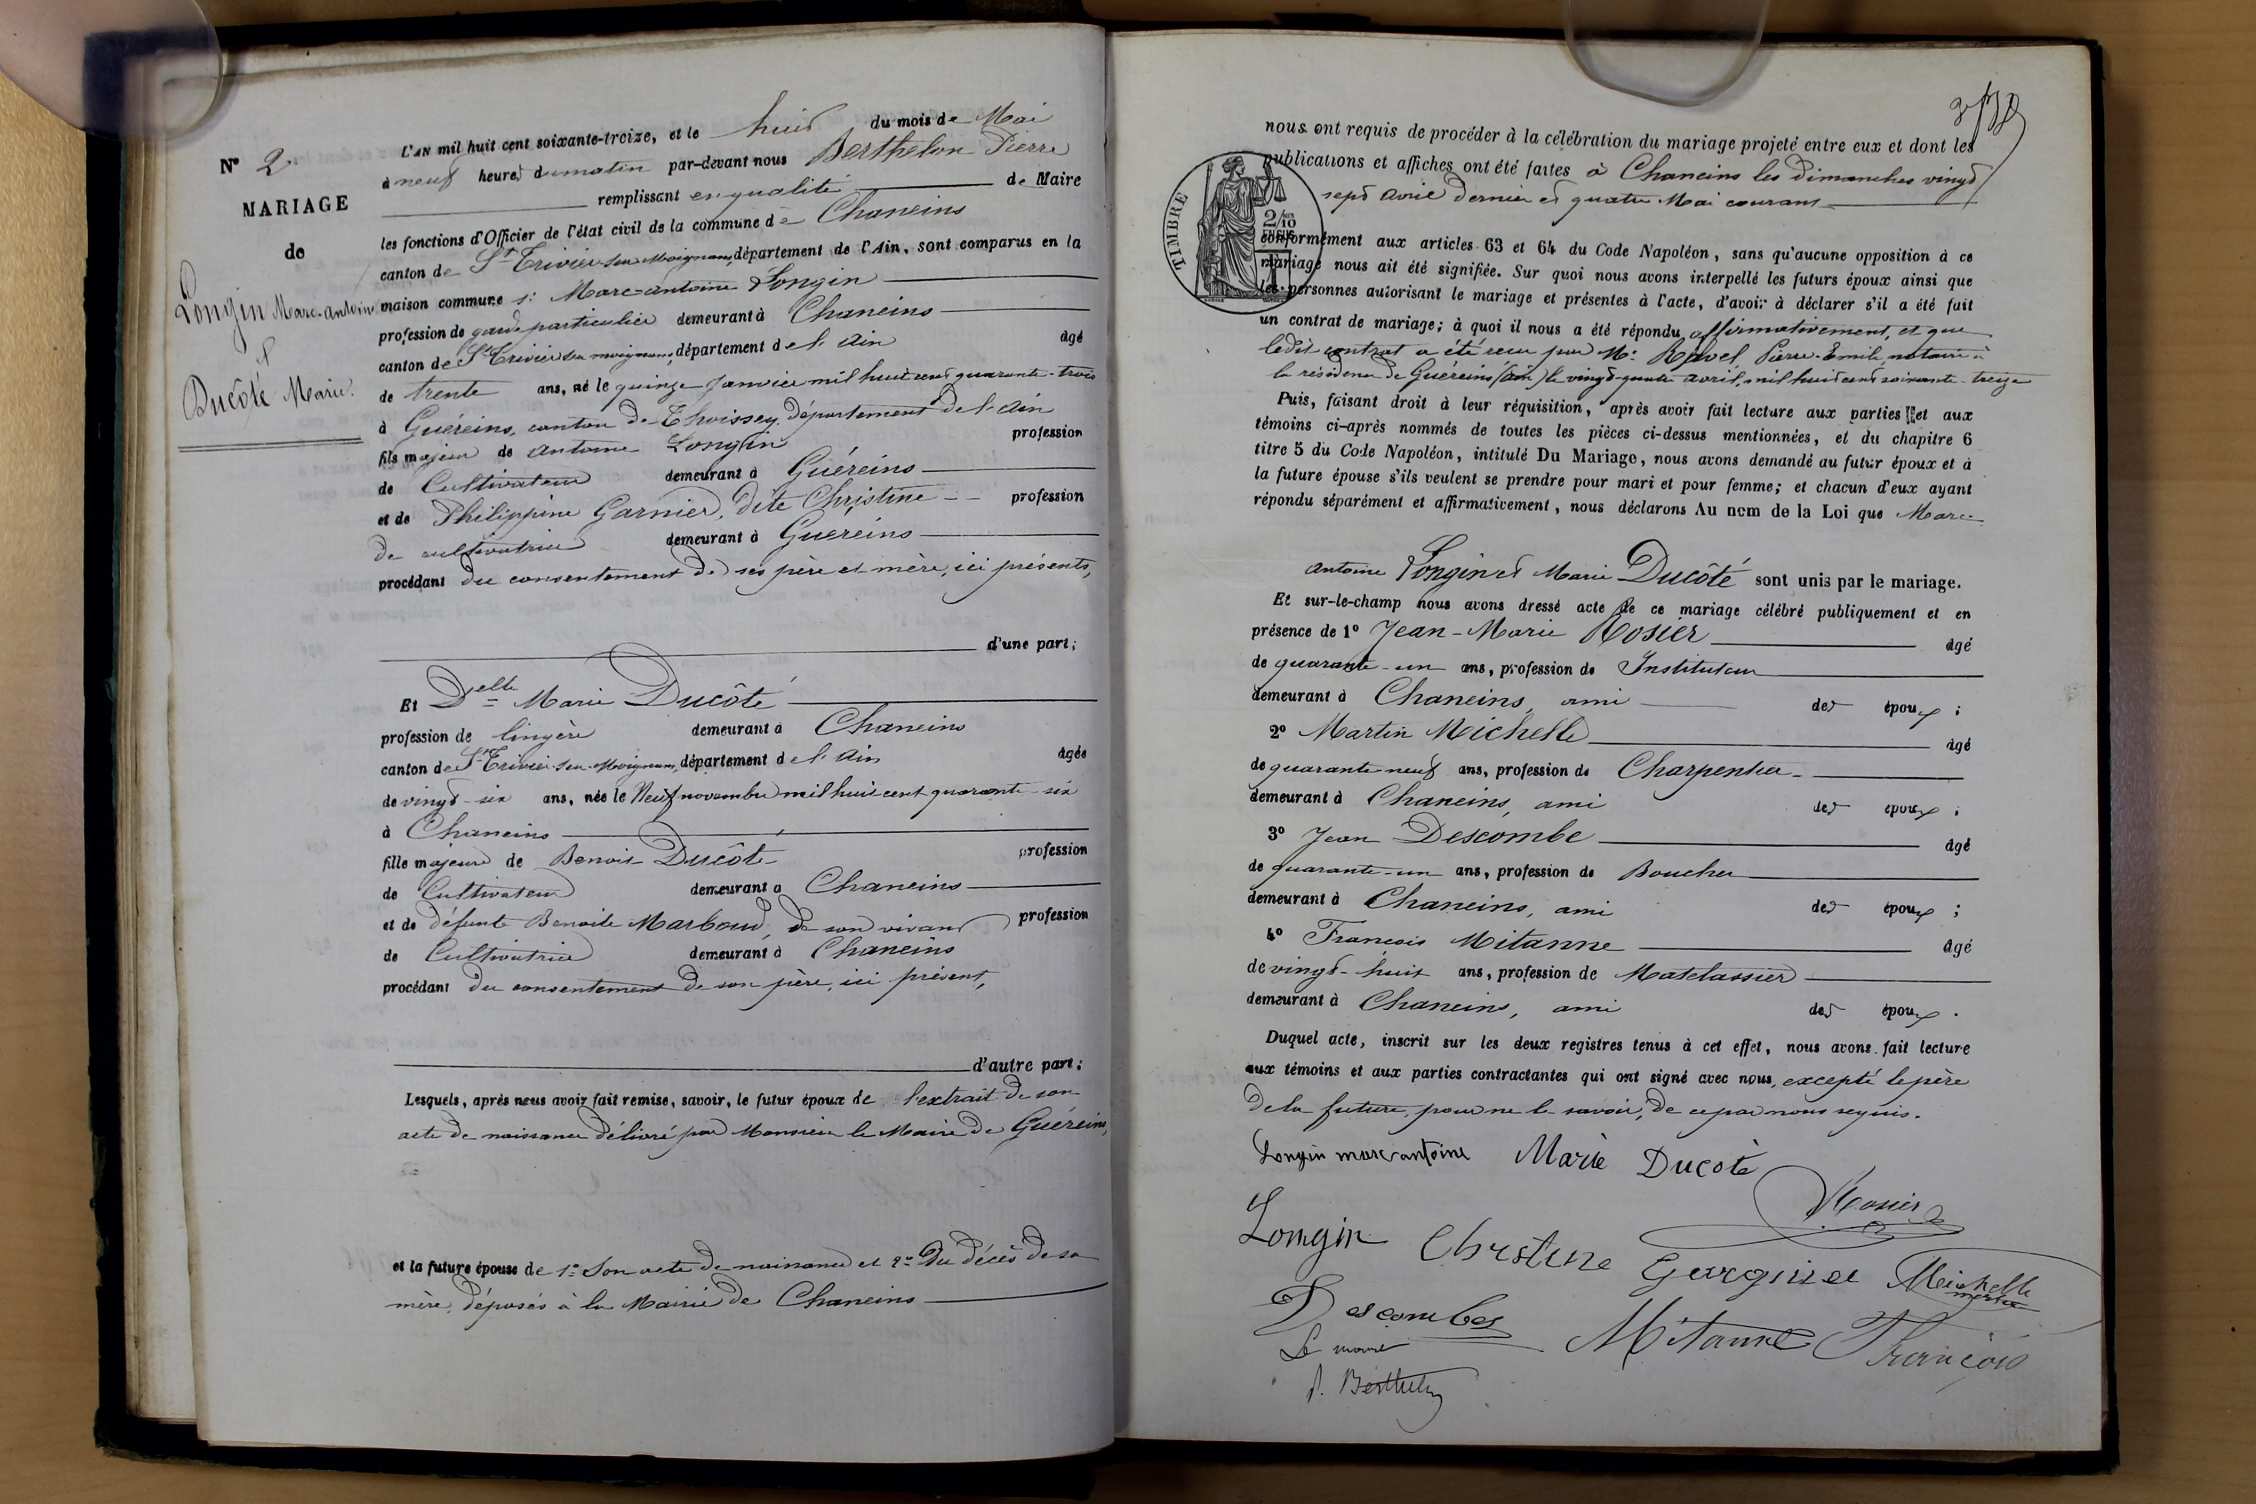 N° 2
MARIAGE
de
Longin Marc-antoine
et
Ducôté Marie.
L'AN mil huit cent soixante-treize, et le huit du mois de Mai
à neuf heures du matin par-devant nous Berthelon Pierre
remplissant en qualité de Maire
les fonctions d'Officier de l'état civil de la commune de Chaneins
canton de St Trivier sur Moignans, département de l'Ain, sont comparus en la
maison commune sr Marc-antoine Longin
profession de garde particulier demeurant à Chaneins
canton de St Trivier sur moignans, département de l'Ain âgé
de trente ans, né le quinze Janvier mil huit cent quarante-trois
à Guéreins, canton de Thoissey, département de l'Ain
fils majeur de Antoine Longin profession
de Cultivateur demeurant à Guéreins
et de Philippine Garnier, dite Christine profession
de cultivatrice demeurant à Guéreins
procédant du consentement de ses père et mère, ici présents,
d'une part;
Et Delle Marie Ducôté
profession de lingère demeurant à Chaneins
canton de St Trivier-sur-Moignans, département de l'Ain âgée
de vingt-six ans, née le Neuf novembre mil huit cent quarante-six
à Chaneins
fille majeure de Benoit Ducôté profession
de Cultivateur demeurant à Chaneins
et de défunte Benoite Marboud, de son vivant profession
de Cultivatrice demeurant à Chaneins
procédant du consentement de son père, ici présent,
d'autre part;
Lesquels, après nous avoir fait remise, savoir, le futur époux de l'extrait de son
acte de naissance délivré par Monsieur le Maire de Guéreins,
et la future épouse de 1° Son acte de naissance et 2° Du décès de sa
mère, déposés à la Mairie de Chaneins
nous ont requis de procéder à la célébration du mariage projeté entre eux et dont les
publications et affiches ont été faites à Chaneins les dimanches vingt
sept avril dernier et quatre Mai courant
TIMBRE
2/10
EN SUS
conformément aux articles 63 et 64 du Code Napoléon, sans qu'aucune opposition à ce
mariage nous ait été signifiée. Sur quoi nous avons interpellé les futurs époux ainsi que
les personnes autorisant le mariage et présentes à l'acte, d'avoir à déclarer s'il a été fait
un contrat de mariage; à quoi il nous a été répondu affirmativement, et que
ledit contrat a été reçu par Me Ravel Pierre-Emile, notaire à
la résidence de Guéreins (Ain) le vingt-quatre avril, mil huit cent soixante-treize
Puis, faisant droit à leur réquisition, après avoir fait lecture aux parties et aux
témoins ci-après nommés de toutes les pièces ci-dessus mentionnées, et du chapitre 6
titre 5 du Code Napoléon, intitulé Du Mariage, nous avons demandé au futur époux et à
la future épouse s'ils veulent se prendre pour mari et pour femme; et chacun d'eux ayant
répondu séparément et affirmativement, nous déclarons Au nom de la Loi que Marc
Antoine Longin et Marie Ducôté sont unis par le mariage.
Et sur-le-champ nous avons dressé acte de ce mariage célébré publiquement et en
présence de 1° Jean-Marie Rosier âgé
de quarante-un ans, profession de Instituteur
demeurant à Chaneins, ami des époux;
2° Martin Michelle âgé
de quarante-neuf ans, profession de Charpentier
demeurant à Chaneins, ami des époux;
3° Jean Descombe âgé
de quarante-un ans, profession de Boucher
demeurant à Chaneins, ami des époux;
4° Francois Mitanne âgé
de vingt-huit ans, profession de Matelassier
demeurant à Chaneins, ami des époux.
Duquel acte, inscrit sur les deux registres tenus à cet effet, nous avons fait lecture
aux témoins et aux parties contractantes qui ont signé avec nous, excepté le père
de la future, pour ne le savoir, de ce par nous requis.
Longin marc antoine Marie Ducoté
Rosier
Longin Christine Garguiee Meichelle
martin
Descombes Mitanne François
Le maire
P. Berthelon